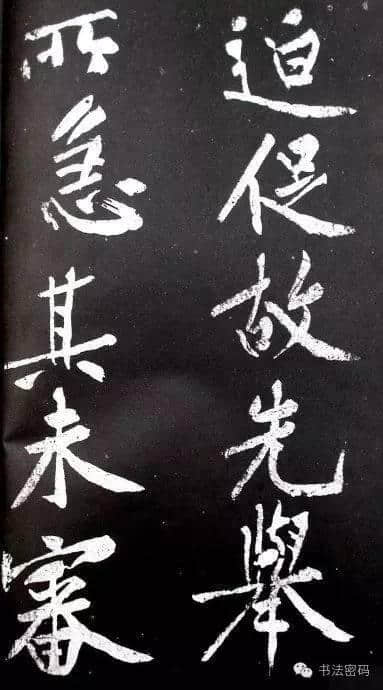 迫促故先舉
所急其未審
书法密码